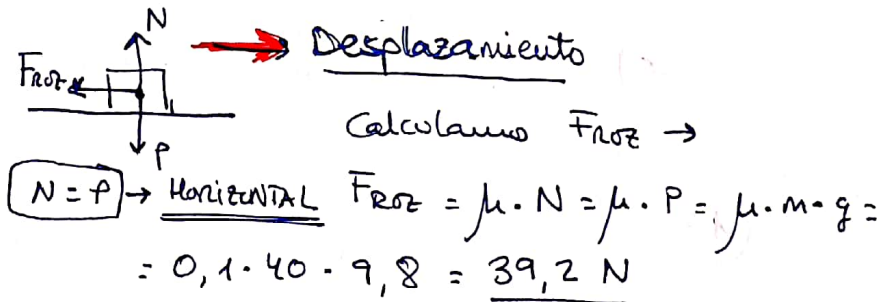 N
Desplazamiento
FROZ
Calculamo FROZ →
P
N = P → HORIZONTAL FROZ = μ · N = μ · P = μ · m · g =
= 0,1 · 40 · 9,8 = 39,2 N